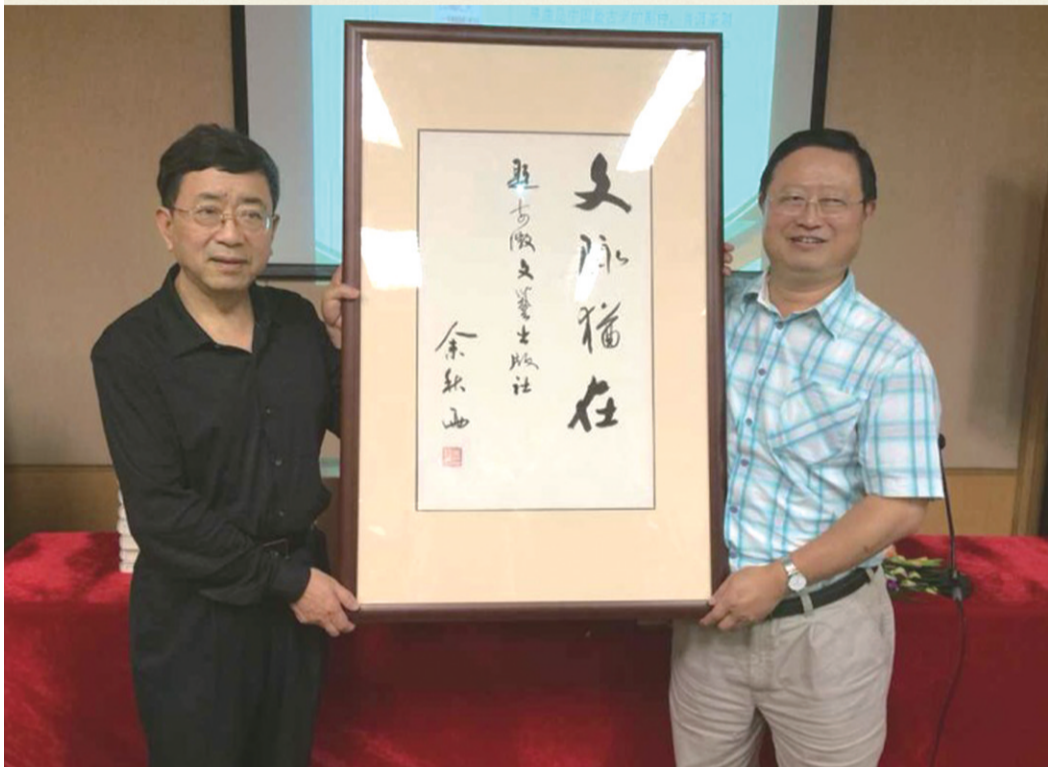 文脉猶在
題安徽文藝出版社
余秋雨